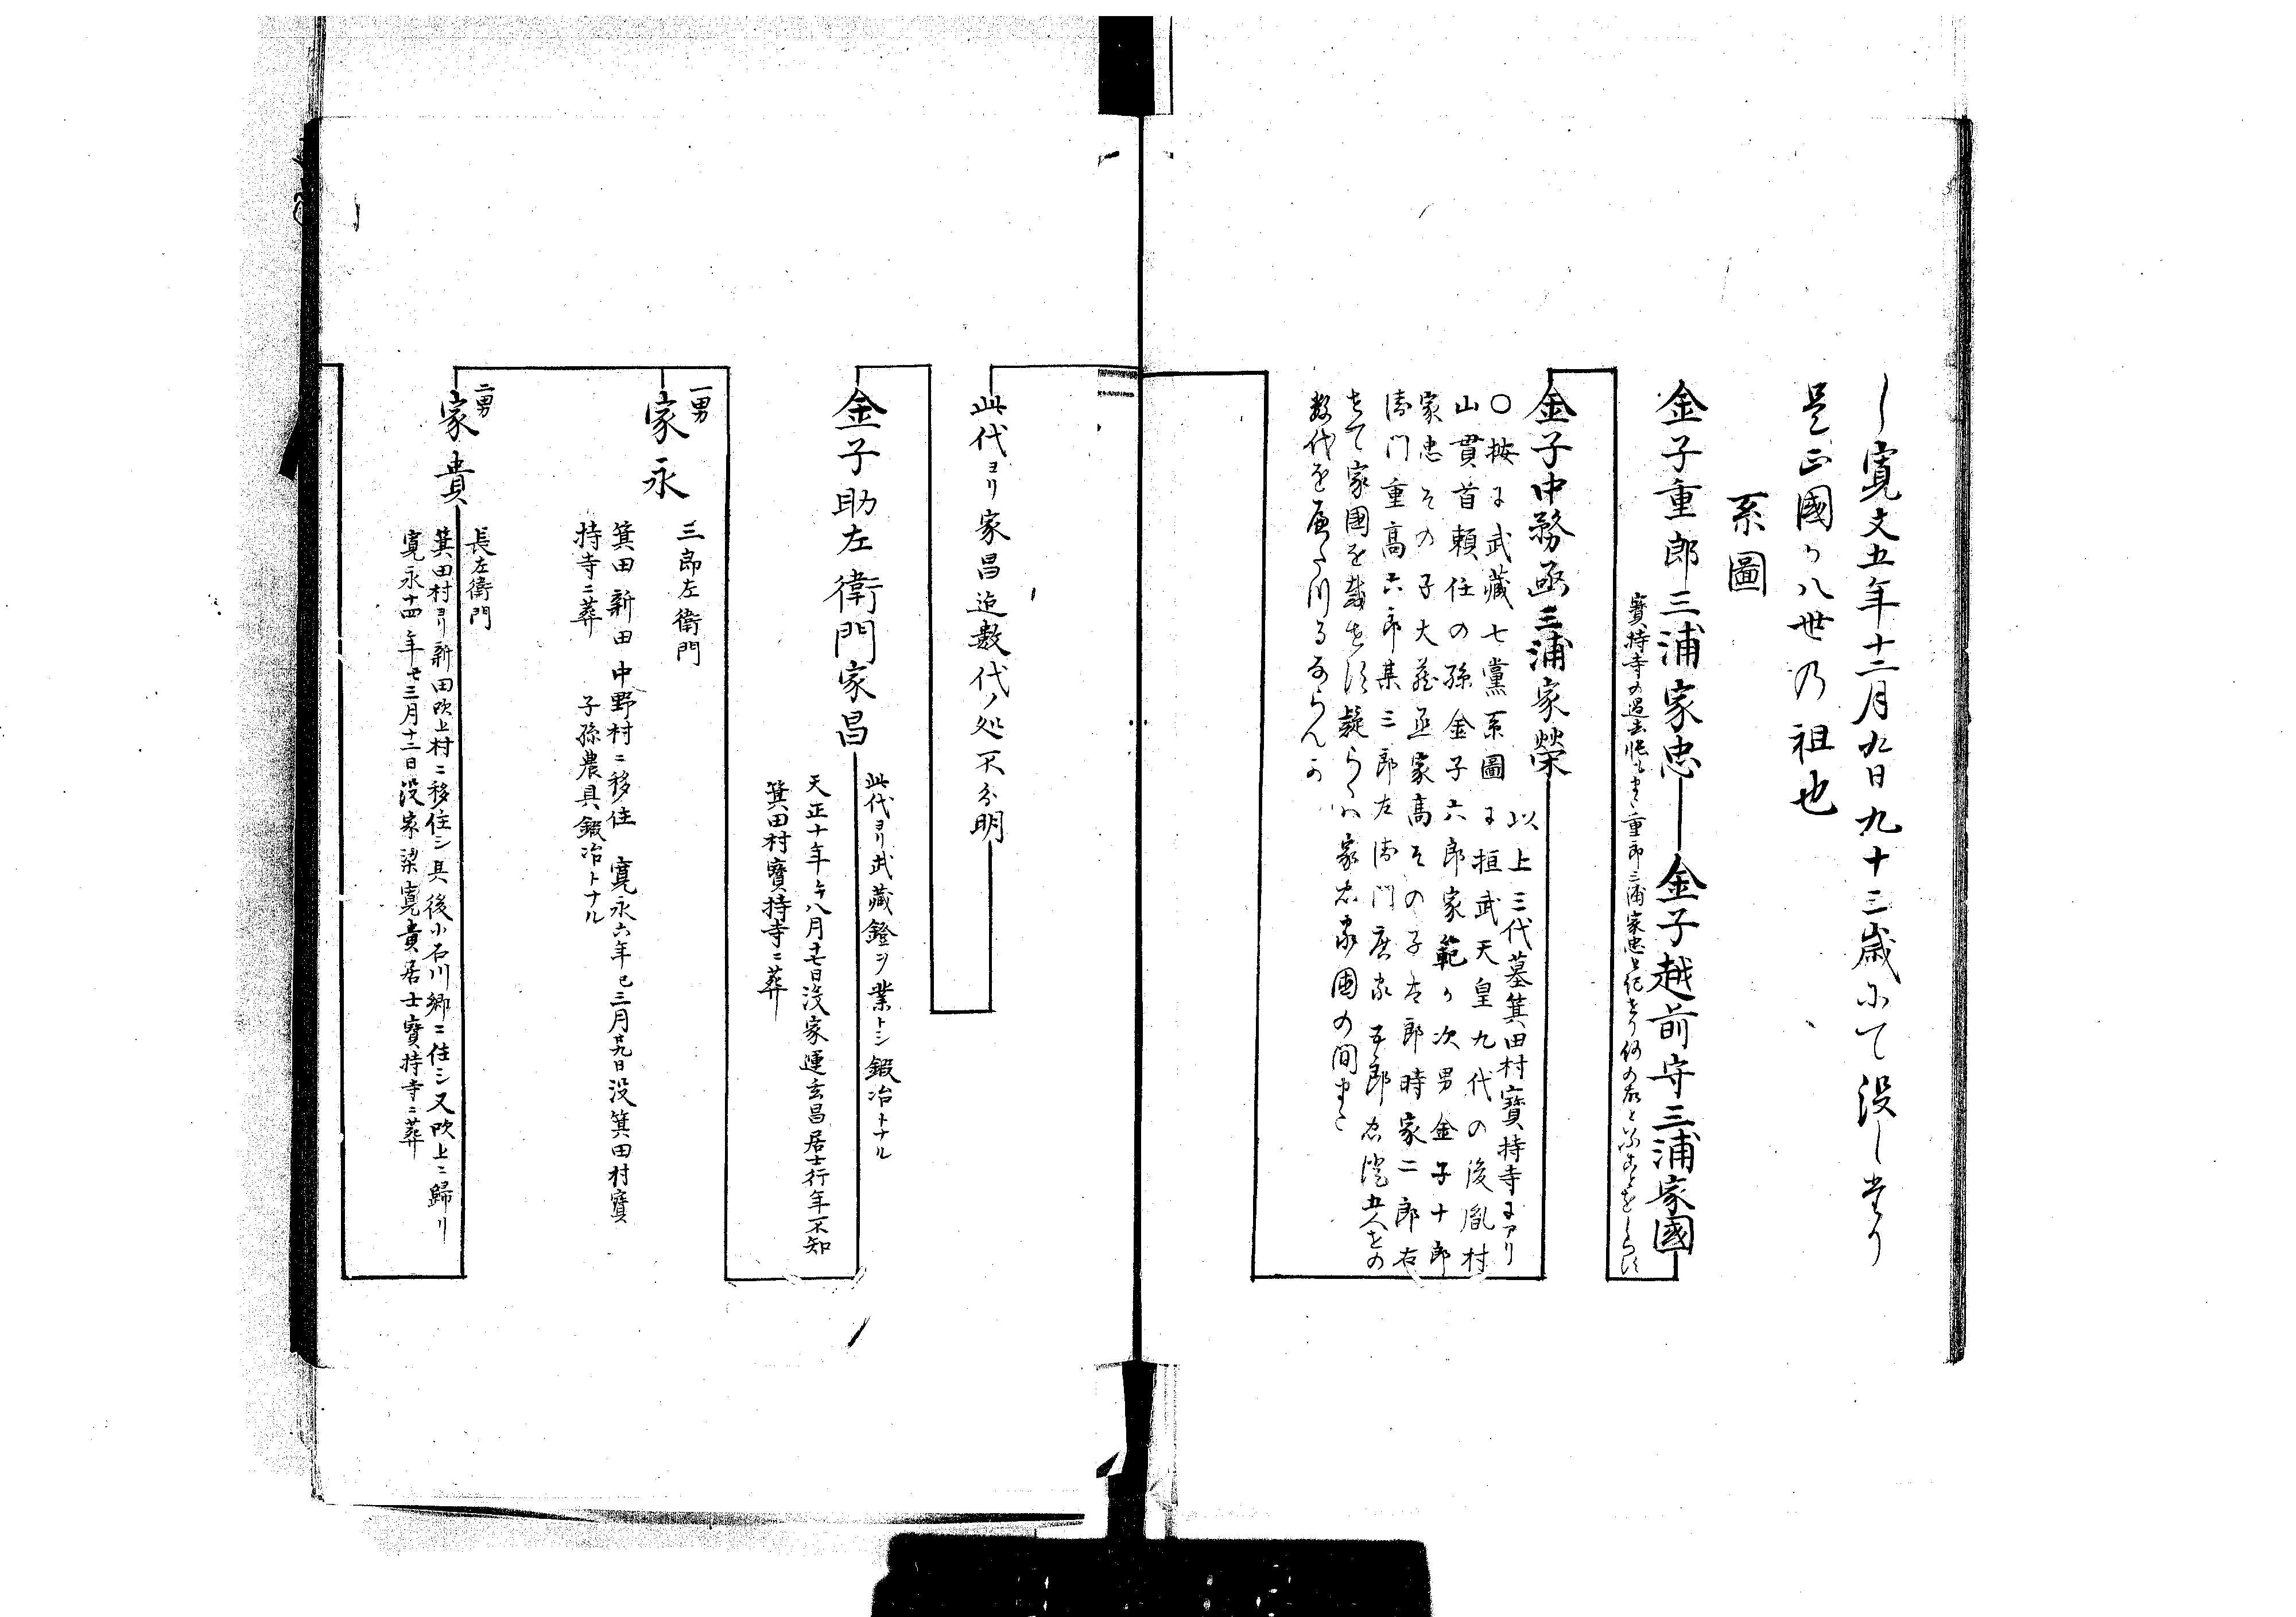 し寛文五年十二月九日九十三歳にて没したり
是正國か八世乃祖也
系圖
金子重郎三浦家忠 金子越前守三浦家國
寶持寺の過去帳に 重郎三浦家忠と記せり何の
金子中務丞三浦家榮
以上三代墓箕田村寶持寺にアリ
○按に武藏七黨系圖に桓武天皇九代の後胤村
山貫首頼任の孫金子六郎家範か次男金子十郎
家忠その子大蔵丞家高その子太郎時家二郎右
衛門重高六郎某三郎左衛門廣家五郎
家國を載せす疑らくハ家忠家國の間
数代を
此代ヨリ家昌迄數代ノ処不分明
金子助左衛門家昌
此代ヨリ武藏鐙ヲ業トシ鍛冶トナル
天正十年午八月十七日没家運玄昌居士行年不知
箕田村寶持寺ニ葬
一男
家永
三郎左衛門
箕田新田中野村ニ移住 寛永六年巳三月廿九日没箕田村寶
持寺ニ葬 子孫農具鍛冶トナル
二男
家貴
長左衛門
箕田村ヨリ新田吹上村ニ移住シ其後小石川郷ニ住シ又吹上ニ歸リ
寛永十四年丑三月十二日没家梁寛貴居士寶持寺ニ葬